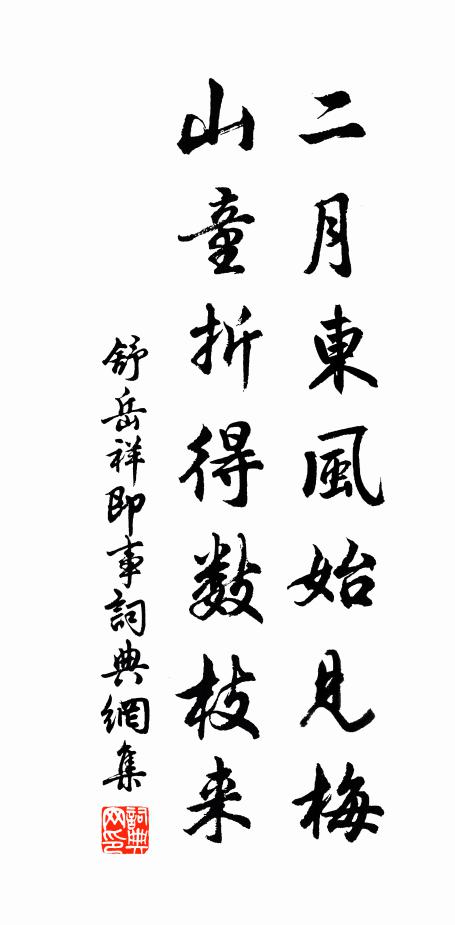 二月東風始見梅
山童折得数枝来
舒岳祥即事詞典網集
詞典网印